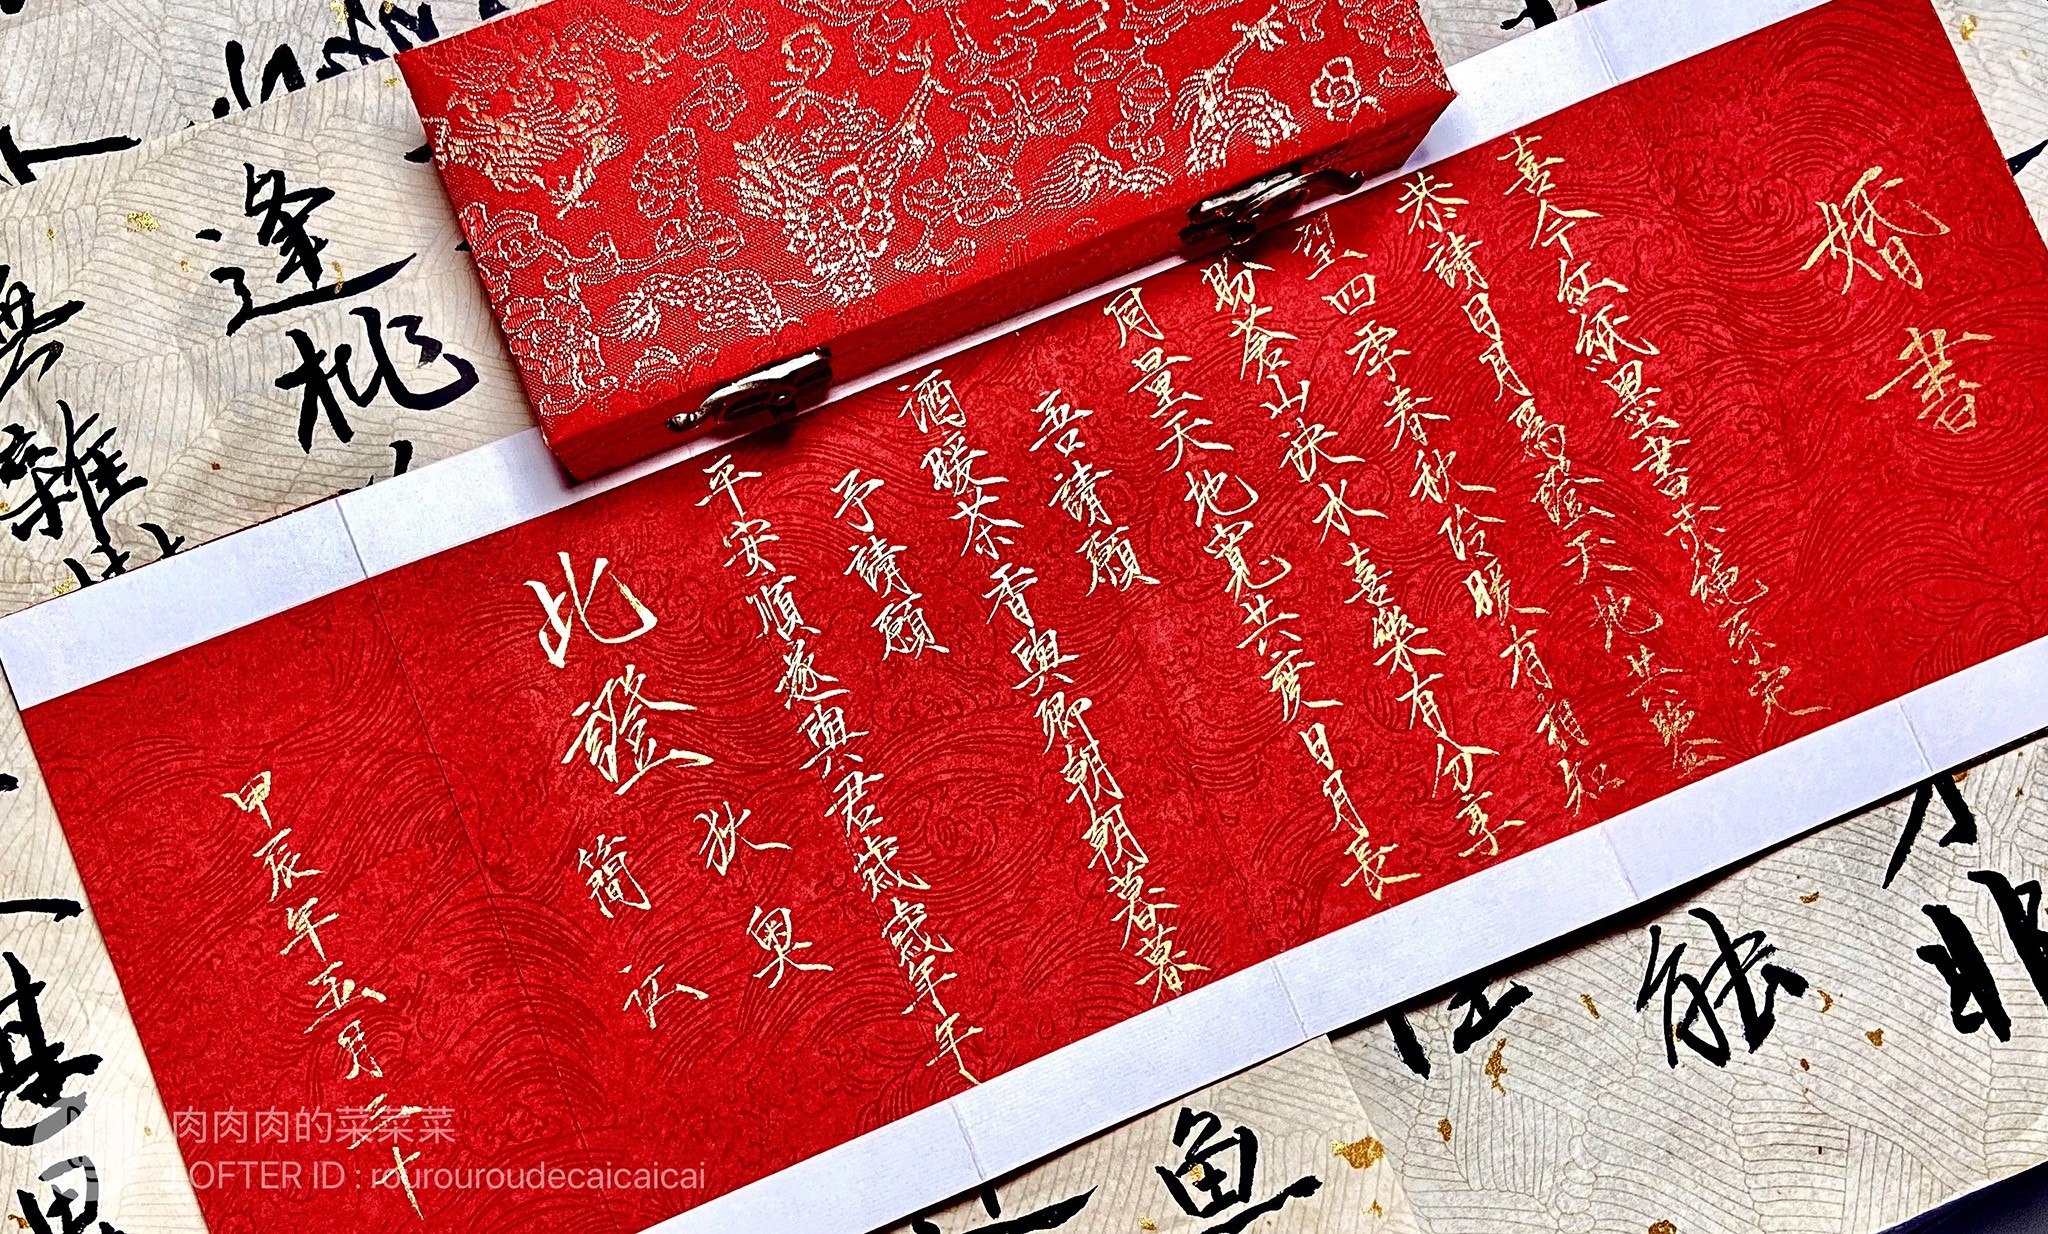 婚書
喜今紅紙墨書赤繩系定
恭請日月為證天地共鑒
望四季春秋冷暖有相知
盼蒼山泱水喜樂有分享
同量天地寬共度日月長
吾請願
酒暖茶香與卿朝朝暮暮
予請願
平安順遂與君歲歲年年
此證
狄奧
簡
甲辰年五月二十
逢
桃
雜
能
非
魚
肉肉肉的菜菜菜
LOFTER ID : rourouroudecaicaicai